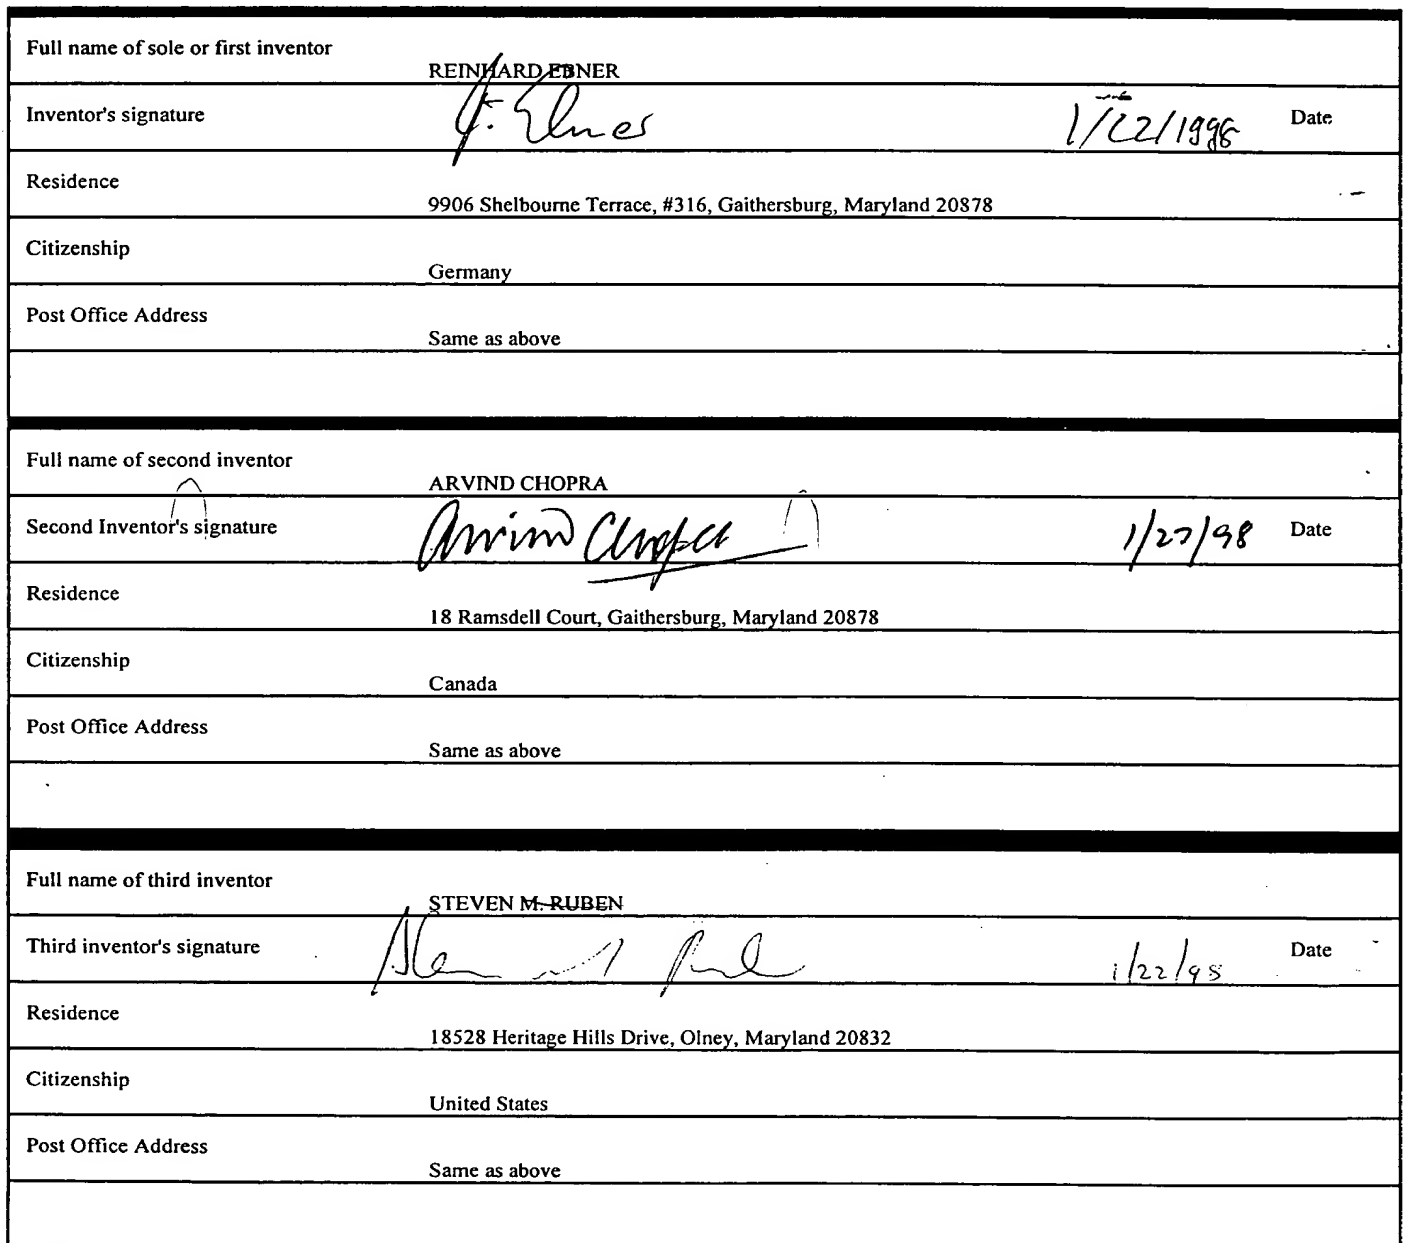 Full name of sole or first inventor
REINHARD EBNER
Inventor's signature
R. Ebner
1/22/1998 Date
Residence
9906 Shelbourne Terrace, #316, Gaithersburg, Maryland 20878
Citizenship
Germany
Post Office Address
Same as above
Full name of second inventor
ARVIND CHOPRA
Second Inventor's signature
Arvind Chopra
1/27/98 Date
Residence
18 Ramsdell Court, Gaithersburg, Maryland 20878
Citizenship
Canada
Post Office Address
Same as above
Full name of third inventor
STEVEN M. RUBEN
Third inventor's signature
Steven M Ruben
1/22/98 Date
Residence
18528 Heritage Hills Drive, Olney, Maryland 20832
Citizenship
United States
Post Office Address
Same as above